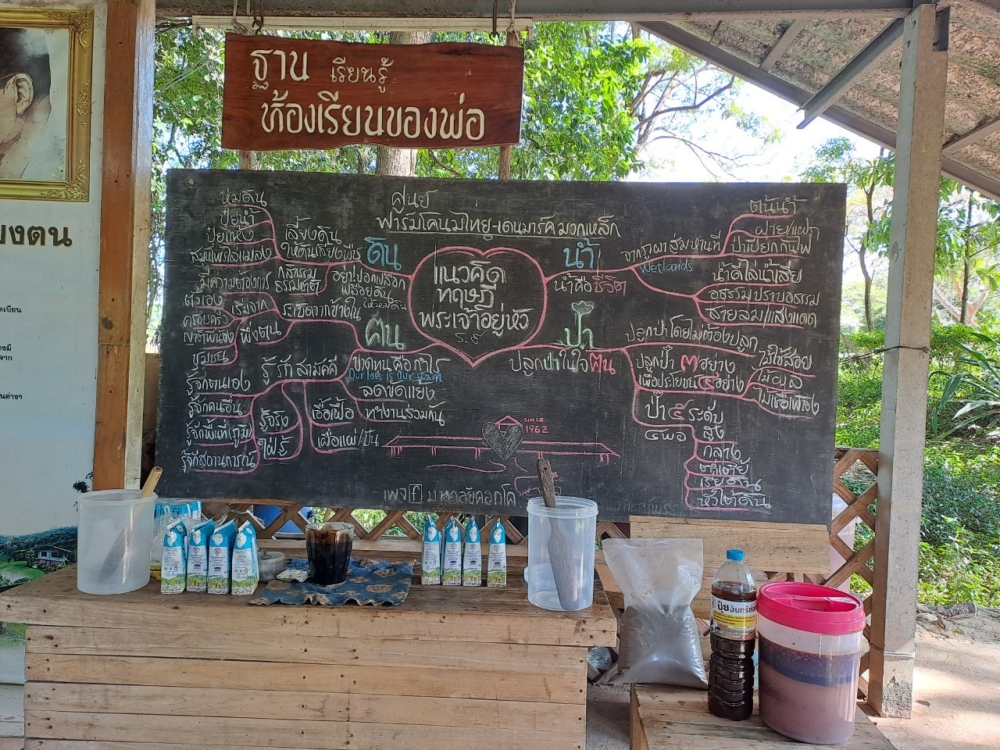 ฐาน เรียนรู้
ห้องเรียนของพ่อ
ยงตน
ศูนย์
ฟาร์มโคนมไทย-เดนมาร์ค มวกเหล็ก
แนวคิด
ทฤษฎี
พระเจ้าอยู่หัว
ร.๙
ดิน
ห่มดิน
ปุ๋ยน้ำ
ปุ๋ยแห้ง
สมุนไพรไล่แมลง
เลี้ยงดิน
ให้ดินเลี้ยงพืช
อย่าปอกเปลือก
กสิกรรม
ธรรมชาติ
คน
ระเบิดจากข้างใน
เริ่มจาก
พึ่งตน
มีความต้องการ
ตัวเอง
ครอบครัว
ชุมชน
ขาดทุน คือกำไร
Our loss is our gain
รู้ รัก สามัคคี
ลดขัดแย้ง
ทำงานร่วมกัน
เอื้อเฟื้อ
เผื่อแผ่/ปัน
รู้จริง
ใฝ่รู้
รู้จักตนเอง
รู้จักคนอื่น
รู้จักพื้นที่
รู้จักสถานการณ์
น้ำ
น้ำคือชีวิต
จากภูผาสู่มหานที
Wetlands
ต้นน้ำ
ฝาย/แฝก
ป่าเปียกกันไฟ
น้ำดีไล่น้ำเสีย
อธรรมปราบอธรรม
สายลม/แสงแดด
ป่า
ปลูกป่าในใจคน
ปลูกป่าโดยไม่ต้องปลูก
ปลูกป่า ๓ อยาง
เพื่อประโยชน์ ๔ อย่าง
ไม้ใช้สอย
ไม้ผล
ไม้เชื้อเพลิง
ป่า ๕ ระดับ
๔ พอ
สูง
กลาง
ต่ำเตี้ย
เรี่ยดิน
หัวใต้ดิน
SINCE
1962
เพจ f มหาลัยคอกโค
ปุ๋ยอินทรีย์